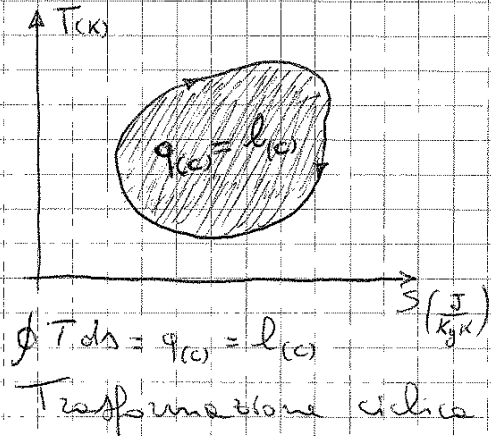 T(K)
q(c) = l(c)
S (J/KgK)
∮ T ds = q(c) = l(c)
Trasformazione ciclica